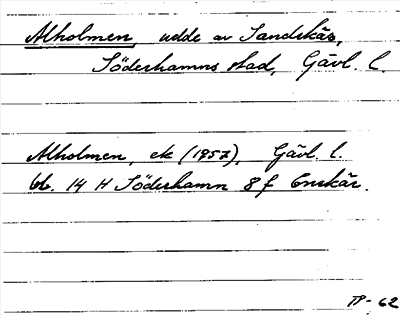 Alholmen, udde av Sandskär,
Söderhamns stad, Gävl. l.
Alholmen, ek (1957), Gävl. l.
bl. 14 H Söderhamn 8 f Enskär.
TP-62